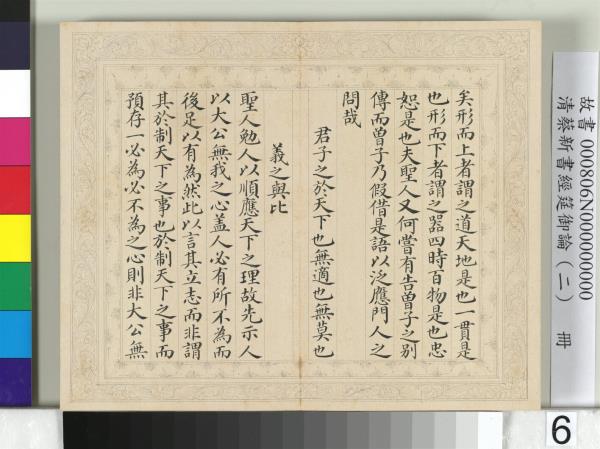 矣形而上者謂之道天地是也一貫是
也形而下者謂之器四時百物是也忠
恕是也夫聖人又何嘗有告曾子之別
傳而曾子乃假借是語以泛應門人之
問哉
君子之於天下也無適也無莫也
義之與比
聖人勉人以順應天下之理故先示人
以大公無我之心蓋人必有所不為而
後足以有為然此以言其立志而非謂
其於制天下之事也於制天下之事而
預存一必為必不為之心則非大公無
故書 000806N000000000
清蔡新書經筵御論(二) 冊
6